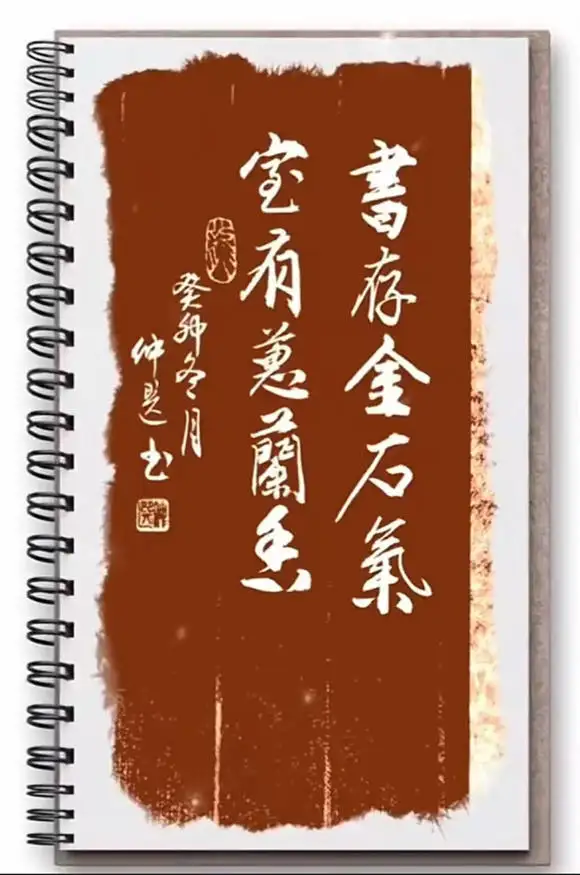 書存金石氣
室有蕙蘭香
癸卯冬月
仲䢎书